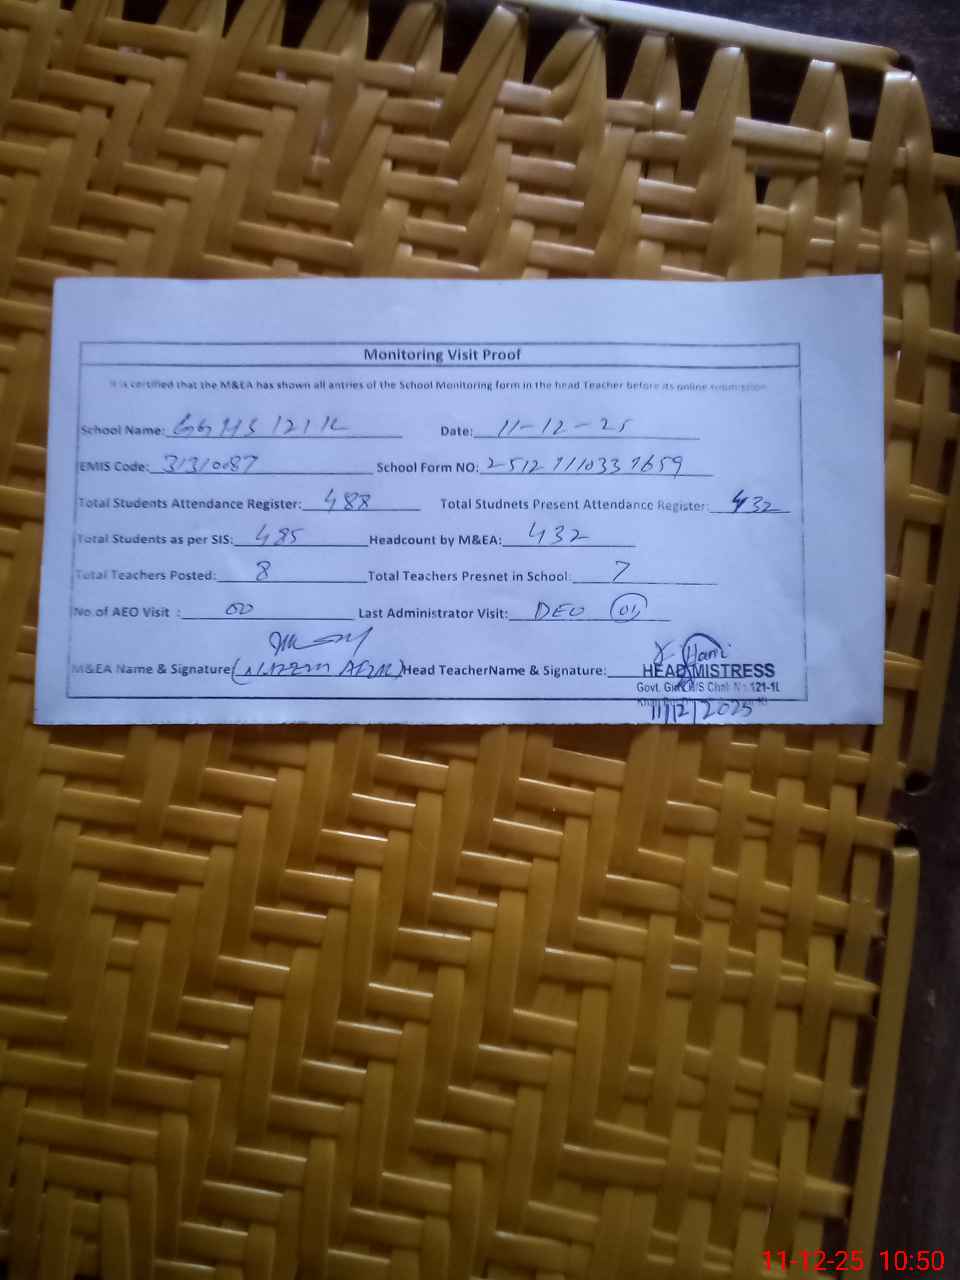 Monitoring Visit Proof
It is certified that the M&EA has shown all antries of the School Monitoring form in the head Teacher before its online submission
School Name: GGHS 121 1L Date: 11-12-25
EMIS Code: 31310087 School Form NO: 2-512
Total Students Attendance Register: 488 Total Studnets Present Attendance Register: 432
Total Students as per SIS: 485 Headcount by M&EA: 432
Total Teachers Posted: 8 Total Teachers Presnet in School: 7
No.of AEO Visit : 00 Last Administrator Visit: DEO 01
M&EA Name & Signature Head TeacherName & Signature:
HEAD MISTRESS
Govt. Girls H/S Chak No. 121-1L
11/12/2025
11-12-25 10:50